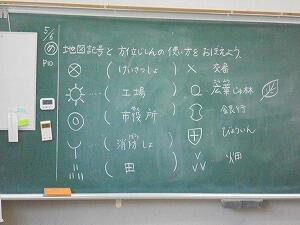 5/6
め
P10
地図記号と方位じしんの使い方をおぼえよう。
(けいさつしょ) × 交番
(工場) 広葉じゅ林
(市役所) 銀行
(消防しょ) びょういん
(田) 畑